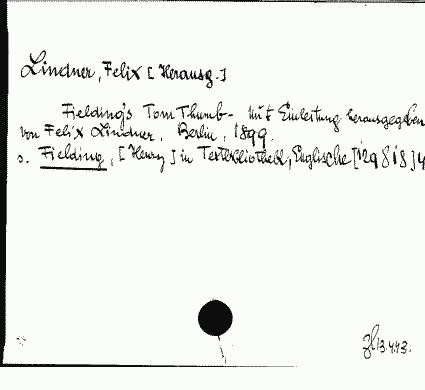 Lindner, Felix [Herausg.]
Fielding's Tom Thumb - Mit Einleitung herausgegeben
von Felix Lindner. Berlin, 1899.
s. Fielding, [Henry] in Textbibliothek, Englische [129818] 4
13.4.43.